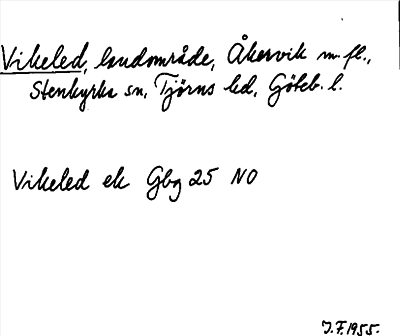 Vikeled, landområde, Åkervik m. fl.,
Stenkyrka sn, Tjörns hd, Göteb. l.
Vikeled ek Gbg 25 NO
J.F. 1955.